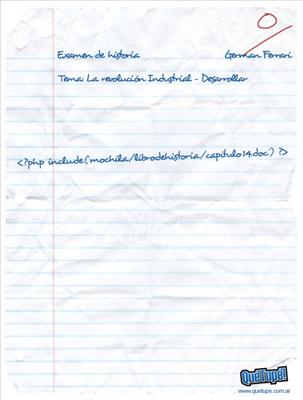 0
Examen de historia German Ferrari
Tema: La revolución Industrial - Desarrollar
<?php include('mochila/librodehistoria/capitulo14.doc') ?>
QueTupe!
www.quetupe.com.ar